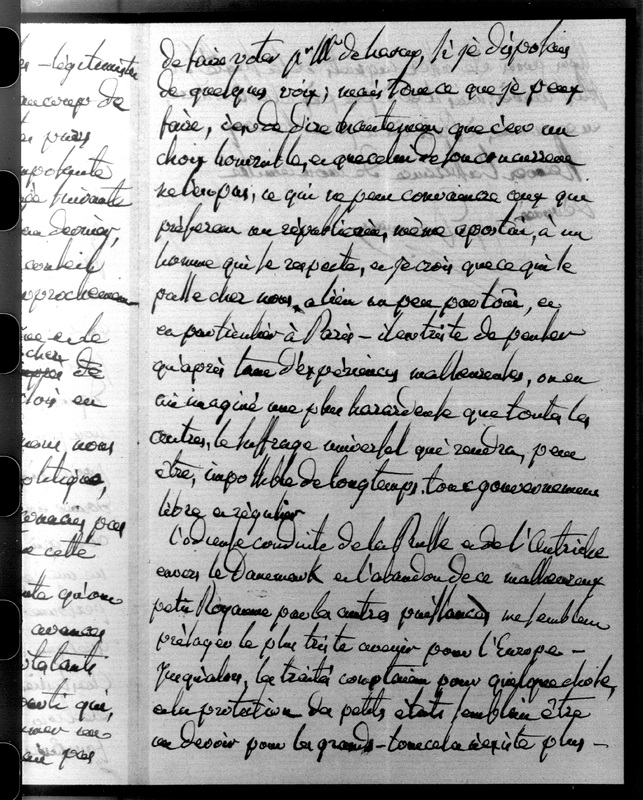 de faire voter pr Mr de si je disposais
de quelques voix; mais tout ce que je peux
faire, c'est de dire hautement que c'est un
choix honorable, et que celui de son concurrent
ne l'est pas, ce qui ne peut convaincre ceux qui
préferent un républicain, même apostat, à un
homme qui le respecte, et je crois que ce qui se
passe chez nous, a lieu un peu partout, et
en particulier à Paris – il est triste de penser
qu'après tant d'expériences malheureuses, on en
ait imaginé une plus hazardeuse que toutes les
autres, le suffrage universel qui rendra, peut
être, impossible de longtemps, tout gouvernement
libre et régulier
L'odieuse conduite de la Prusse et de l'Autriche
envers le Danemark et l'abandon de ce malheureux
petit Royaume par les autres puissances me semblent
présager le plus triste avenir pour l'Europe –
Jusqu'alors, les traités comptaient pour quelque chose,
et la protection des petits états semblait être
un devoir pour les grands – tout cela n'existe plus –
légitimiste
beaucoup de
pas
importante
suivante
conseil
cette
qu'on
avances
qui,
pas